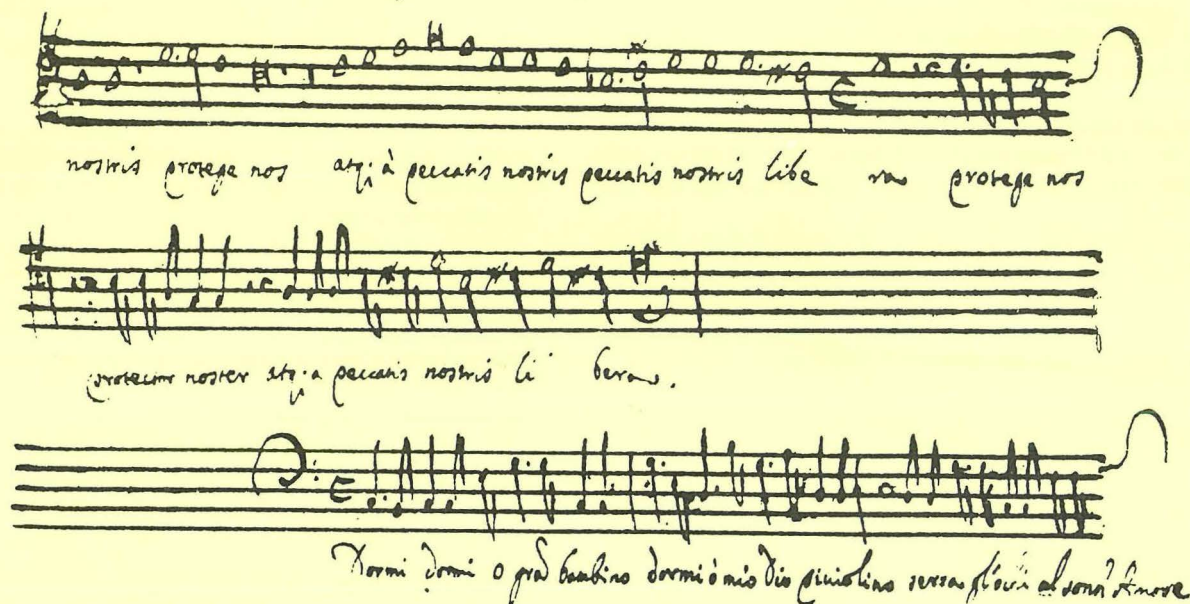 nostris protege nos atq; à peccatis nostris peccatis nostris libe ra protege nos
protector noster atq; a peccatis nostris li bera.
Dormi dormi o gra bambino dormi ò mio Dio piciolino serra gl'occhi al sono Amore